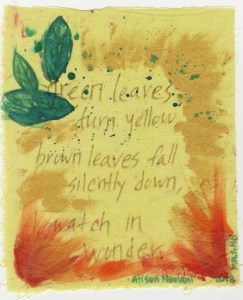 Green leaves
turn yellow
brown leaves fall
silently down,
watch in
wonder.
Alison